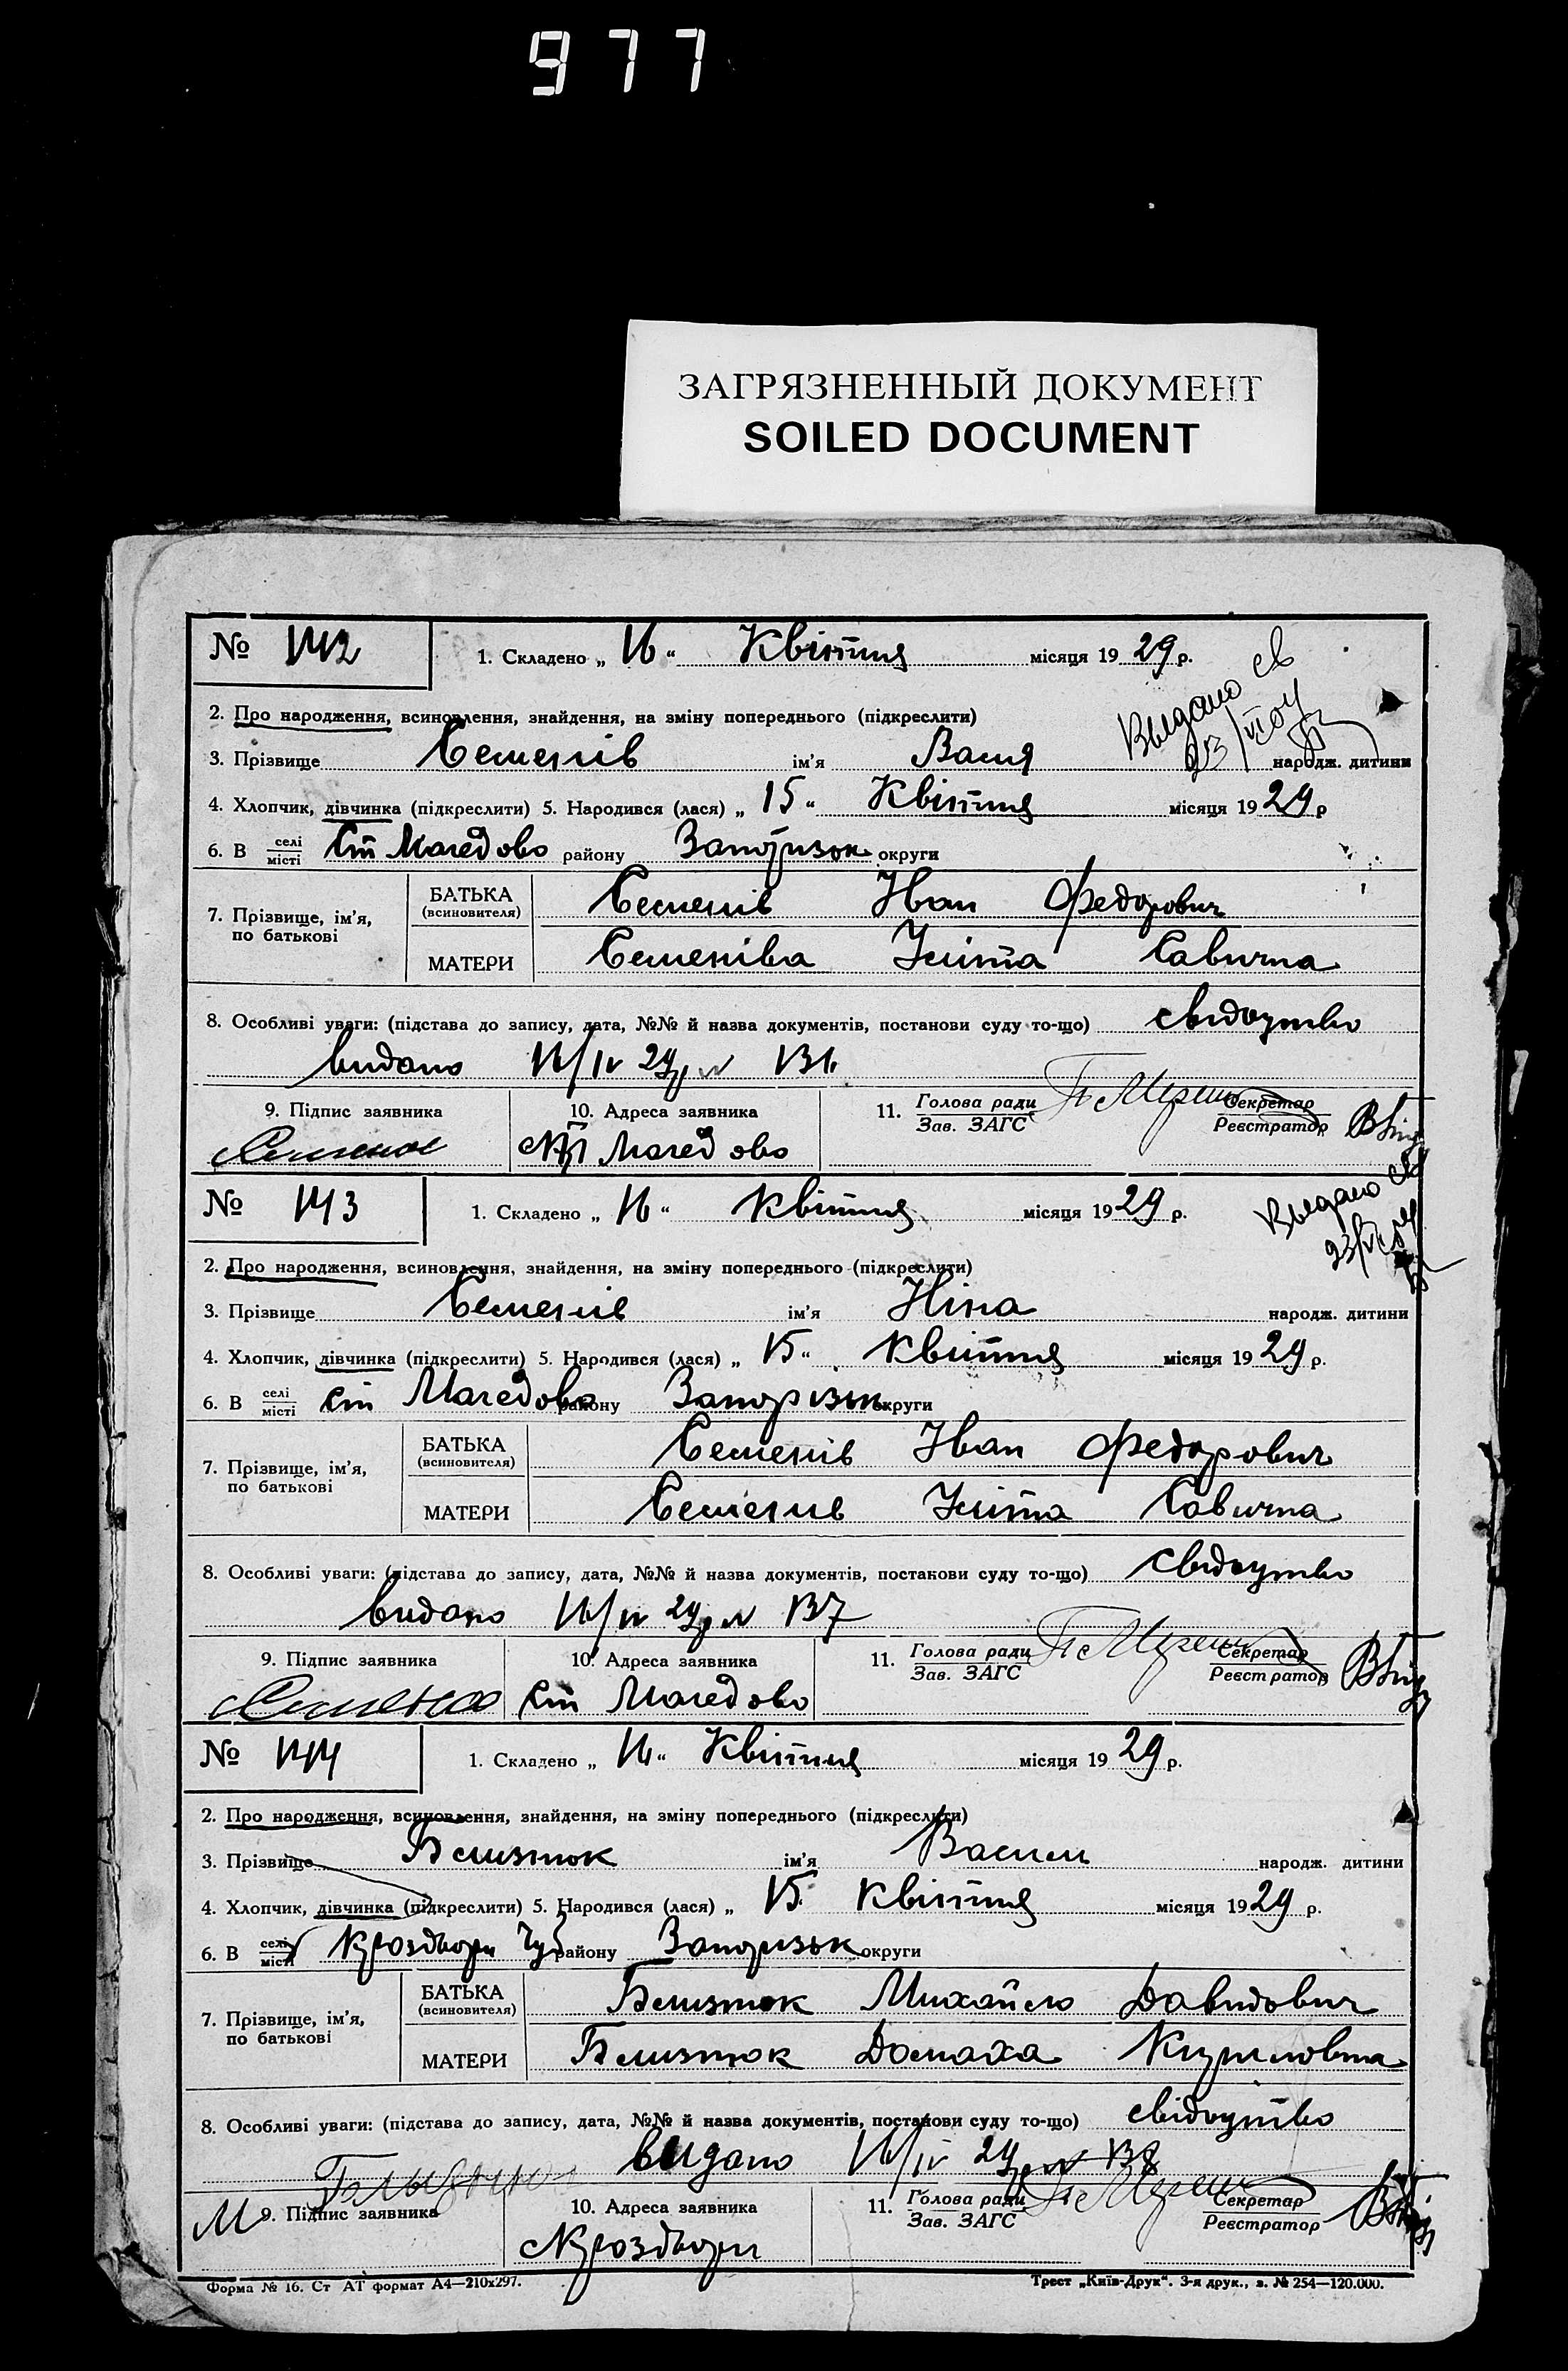 977
ЗАГРЯЗНЕННЫЙ ДОКУМЕНТ
SOILED DOCUMENT
№ 142 1. Складено „ 16 “ Квітня місяця 1929 р.
Выдано св
2. Про народження, всиновлення, знайдення, на зміну попереднього (підкреслити)
3. Прізвище Семенів ім'я Вася народж. дитини
4. Хлопчик, дівчинка (підкреслити) 5. Народився (лася) „ 15 “ Квітня місяця 1929 р
6. В селі місті Ст Магедово району Запоризьк округи
7. Прізвище, ім'я, по батькові
БАТЬКА (всиновителя) Семенів Иван Федорович
МАТЕРИ Семеніва Улита Савична
8. Особливі уваги: (підстава до запису, дата, №№ й назва документів, постанови суду то-що) свідоцтво
видано 16/IV 29р № 136
9. Підпис заявника 10. Адреса заявника 11. Голова ради Зав. ЗАГС Секретар Реєстратор
Магедово
№ 143 1. Складено „ 16 “ квітня місяця 1929 р.
Выдано св
2. Про народження, всиновлення, знайдення, на зміну попереднього (підкреслити)
3. Прізвище Семенів ім'я Ніна народж. дитини
4. Хлопчик, дівчинка (підкреслити) 5. Народився (лася) „ 15 “ Квітня місяця 1929 р.
6. В селі місті Ст Магедово району Запорізьк округи
7. Прізвище, ім'я, по батькові
БАТЬКА (всиновителя) Семенів Иван Федорович
МАТЕРИ Семенів Улита Савична
8. Особливі уваги: (підстава до запису, дата, №№ й назва документів, постанови суду то-що) свідоцтво
видано 16/IV 29р № 137
9. Підпис заявника 10. Адреса заявника 11. Голова ради Зав. ЗАГС Секретар Реєстратор
Ст Магедово
№ 144 1. Складено „ 16 “ Квітня місяця 1929 р.
2. Про народження, всиновлення, знайдення, на зміну попереднього (підкреслити)
3. Прізвище Близнюк ім'я Васили народж. дитини
4. Хлопчик, дівчинка (підкреслити) 5. Народився (лася) „ 15 Квітня місяця 1929 р.
6. В селі місті району Запоризьк округи
7. Прізвище, ім'я, по батькові
БАТЬКА (всиновителя) Близнюк Михайло Давидович
МАТЕРИ Близнюк Домаха Кириловна
8. Особливі уваги: (підстава до запису, дата, №№ й назва документів, постанови суду то-що) свідоцтво
видано 16/IV 29р № 138
9. Підпис заявника 10. Адреса заявника 11. Голова ради Зав. ЗАГС Секретар Реєстратор
Форма № 16. Ст АТ формат А4—210х297. Трест „Київ-Друк“. 3-я друк., з. № 254—120.000.